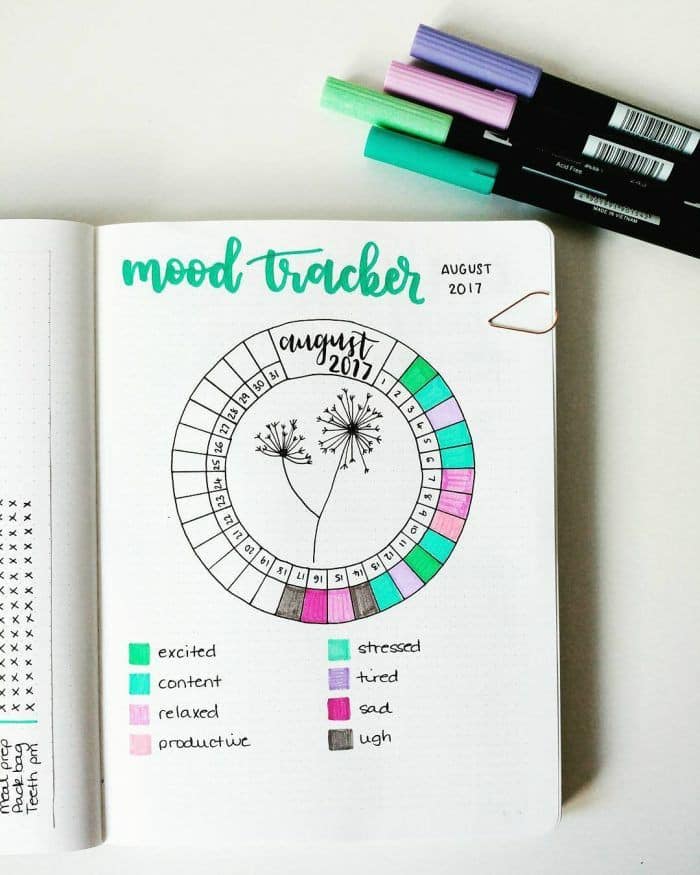 Acid Free
MADE IN VIETNAM
mood tracker
AUGUST
2017
august
2017
1
2
3
4
5
6
7
8
9
10
11
12
13
14
15
16
17
18
19
20
21
22
23
24
25
26
27
28
29
30
31
excited
content
relaxed
productive
stressed
tired
sad
ugh
Meal prep
Pack bag
Teeth pm